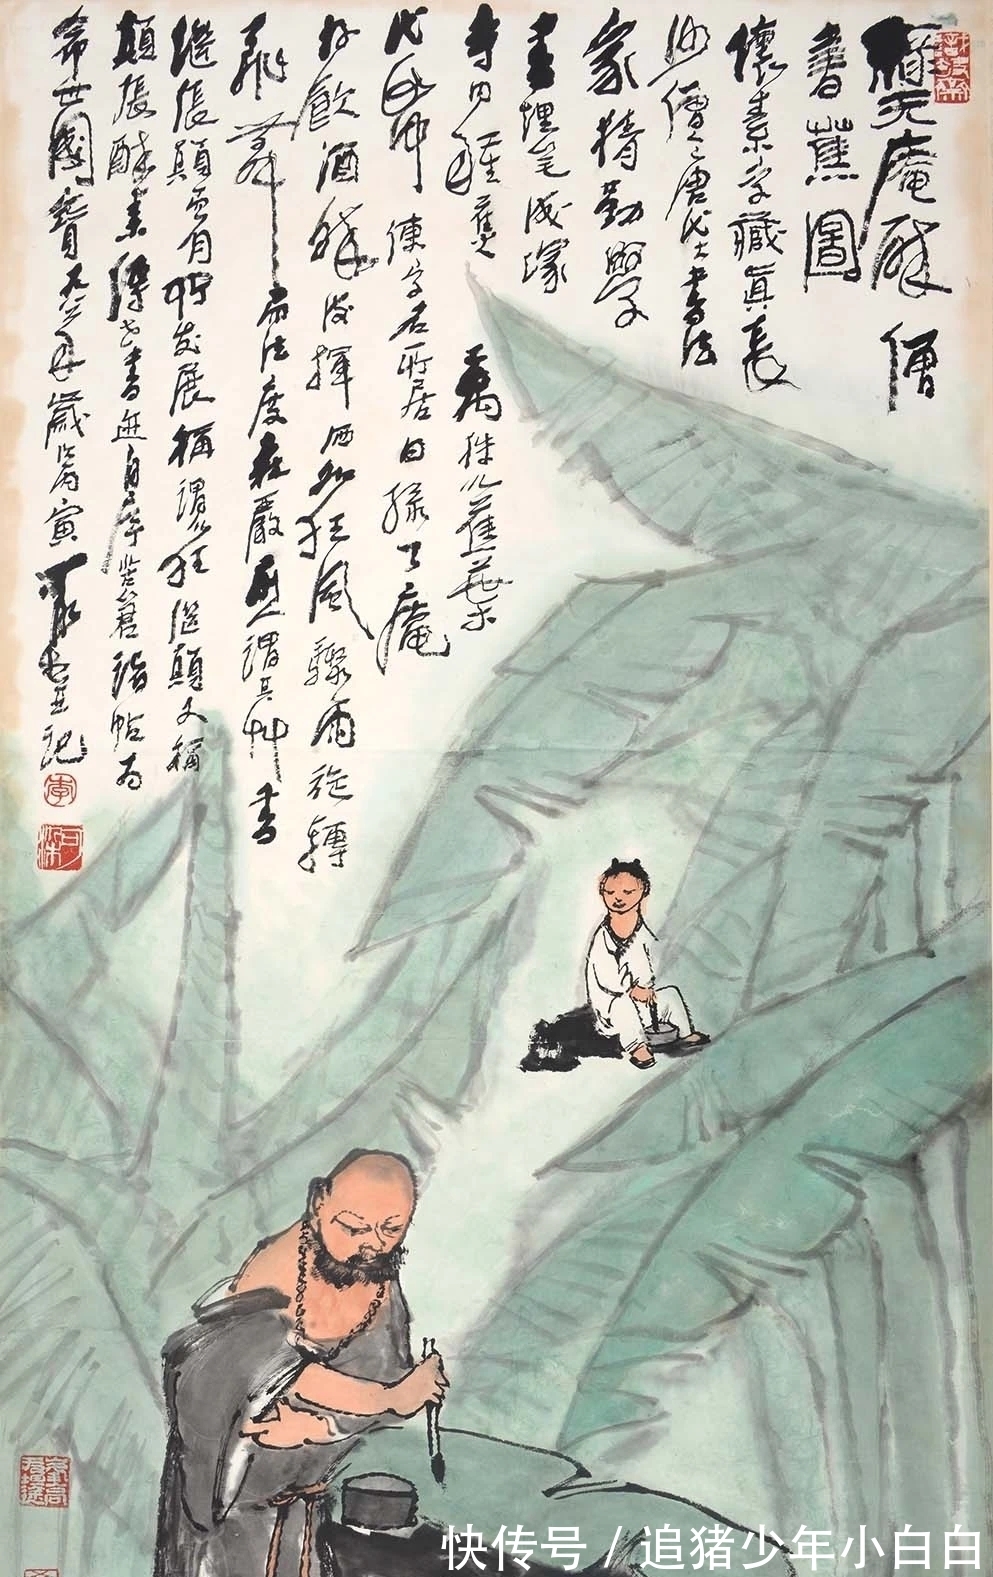 綠天庵醉僧
書蕉圖
懷素字藏真長
沙僧也唐代大書法
家精勤學
書埋笔成塚
寺内種蕉萬株以蕉葉
代帋練字名所居曰綠天庵
好飲酒醉後揮洒如狂風驟雨旋轉
飛舞而法度嚴人謂其艸書
繼張顛而有所发展稱謂以狂继顛又稱
顛張醉素傳世書迹自序苦筍諸帖为
希世國寶九八六年歲丙寅可染記
李
可染
快传号 / 追猪少年小白白